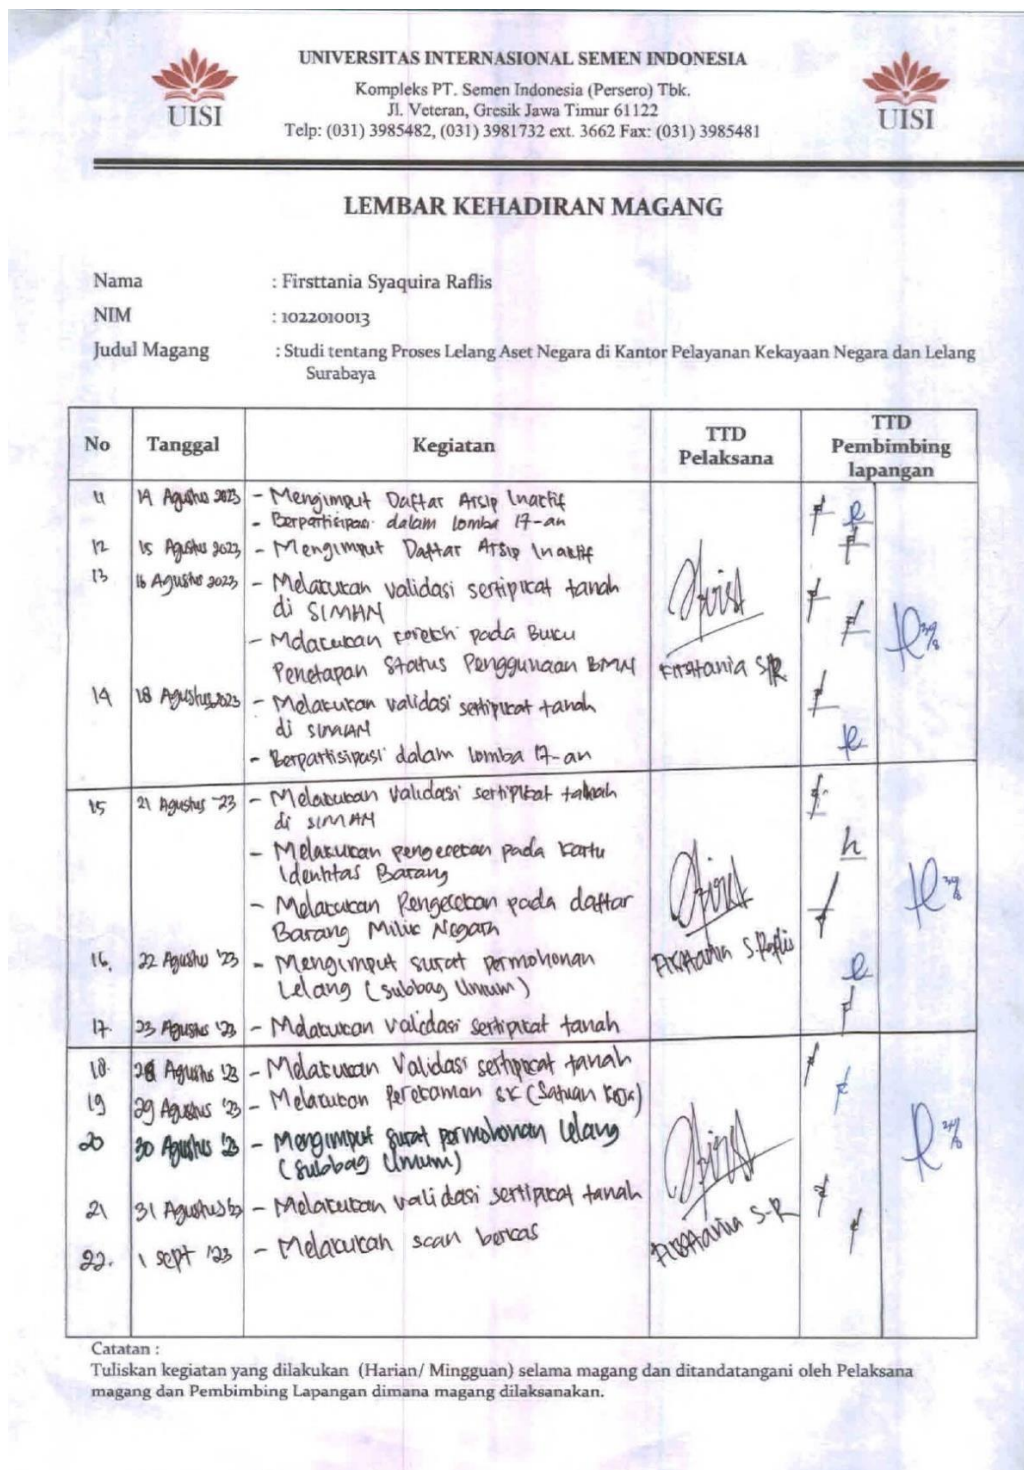 UISI
UNIVERSITAS INTERNASIONAL SEMEN INDONESIA
Kompleks PT. Semen Indonesia (Persero) Tbk.
Jl. Veteran, Gresik Jawa Timur 61122
Telp: (031) 3985482, (031) 3981732 ext. 3662 Fax: (031) 3985481
UISI
LEMBAR KEHADIRAN MAGANG
Nama : Firsttania Syaquira Raflis
NIM : 1022010013
Judul Magang : Studi tentang Proses Lelang Aset Negara di Kantor Pelayanan Kekayaan Negara dan Lelang
Surabaya
No Tanggal Kegiatan TTD Pelaksana TTD Pembimbing lapangan
11 14 Agustus 2023 - Mengimput Daftar Arsip Inactif
- Berpartisipasi dalam lomba 17-an
12 15 Agustus 2023 - Mengimput Daftar Arsip Inaktif
13 16 Agustus 2023 - Melakukan validasi sertipikat tanah
di SIMAN
- Melakukan koreksi pada Buku
Penetapan Status Penggunaan BMN
Firsttania S/R
14 18 Agustus 2023 - Melakukan validasi sertipikat tanah
di SIMAN
- Berpartisipasi dalam lomba 17-an
15 21 Agustus '23 - Melakukan validasi sertipikat tanah
di SIMAN
- Melakukan pengecekan pada kartu
Identitas Barang
- Melakukan Pengecekan pada daftar
Barang Milik Negara
Firsttania S.Raflis
16. 22 Agustus '23 - Mengimput surat permohonan
Lelang (subbag Umum)
17. 23 Agustus '23 - Melakukan validasi sertipikat tanah
18. 28 Agustus '23 - Melakukan Validasi sertipikat tanah
19 29 Agustus '23 - Melakukan Perekaman SK (Satuan Kerja)
20 30 Agustus '23 - Mengimput surat permohonan Lelang
(subbag Umum)
21 31 Agustus '23 - Melakukan validasi sertipikat tanah
Firsttania S-R
22. 1 sept '23 - Melakukan scan berkas
Catatan :
Tuliskan kegiatan yang dilakukan (Harian/ Mingguan) selama magang dan ditandatangani oleh Pelaksana
magang dan Pembimbing Lapangan dimana magang dilaksanakan.